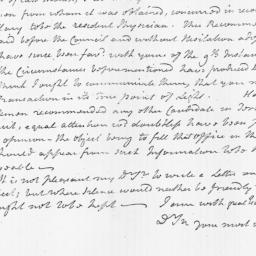 from whom it was obtained, concurred in recom
lary to the resident Physician. This Recommen
laid before the Council and without Hesitation ad
have since been fav. with yours of the 9th Instant
the Circumstances before mentioned have produced
think I ought to communicate them, that you m
transaction in its true point of Light. Ha
tlemen recommended any other Candidate in
ent, equal attention wd doubtless have been
opinion - the object being to fill that office in th
should appear from such Information to be
sable -
It is not pleasant my Dr Sr to write a Letter on
ject; but where silence would neither be friendly
ought not to be kept - I am with great
Dr Sir your most